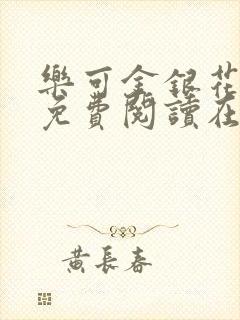 樂可金銀花
免費閱讀在
黃長春